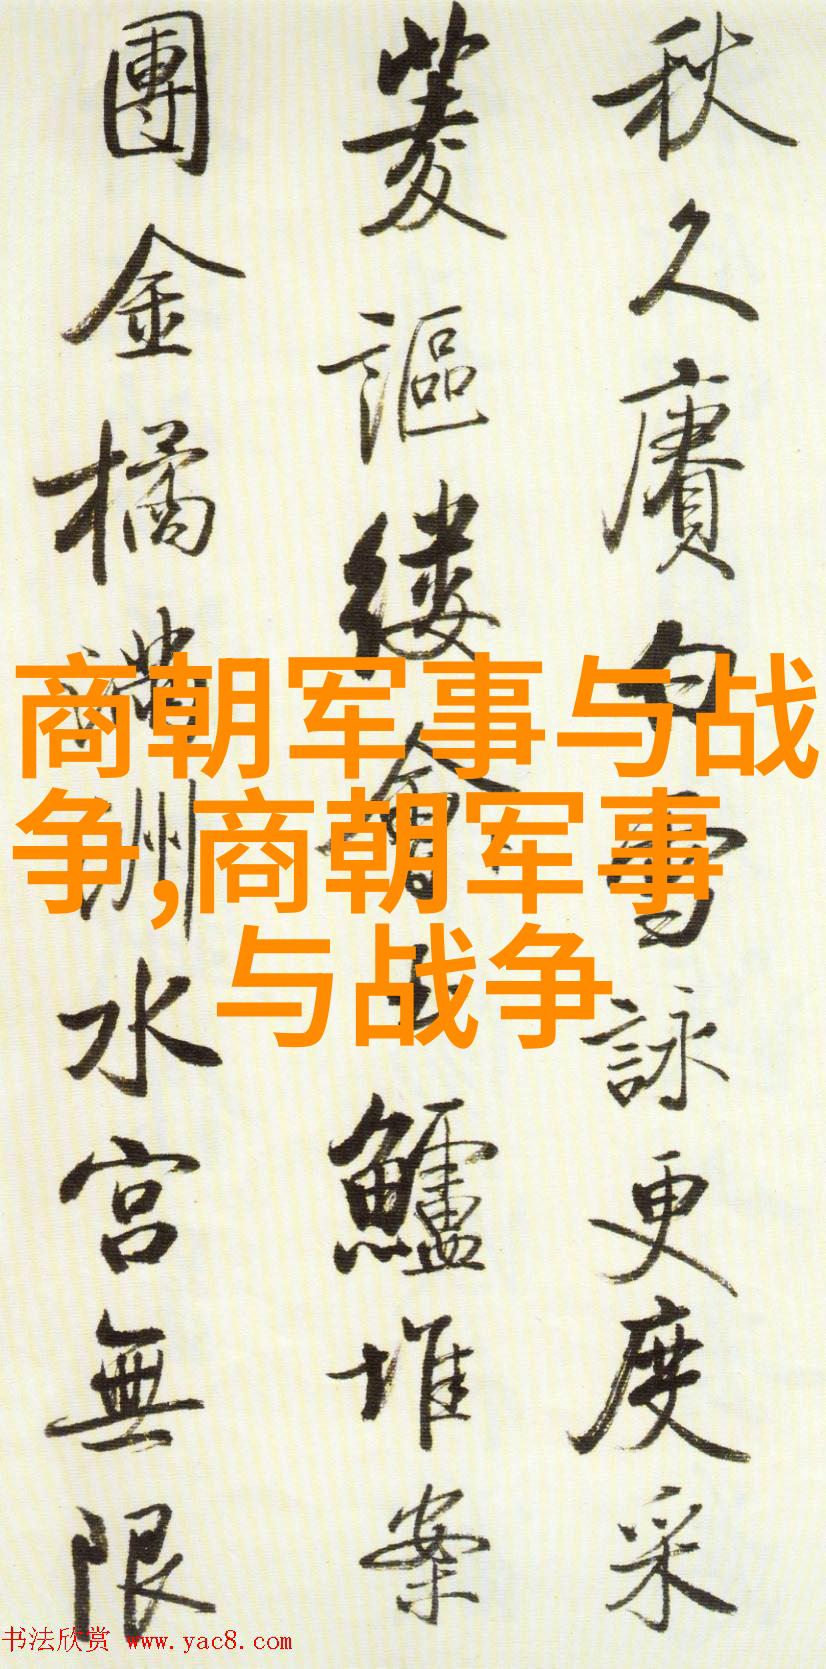 秋久賡白雪詠更度采
菱謳縷會玉鱸堆案
團金橘滿洲水宮無限
商朝军事与战
争,商朝军事
与战争
书法欣赏 www.yac8.com